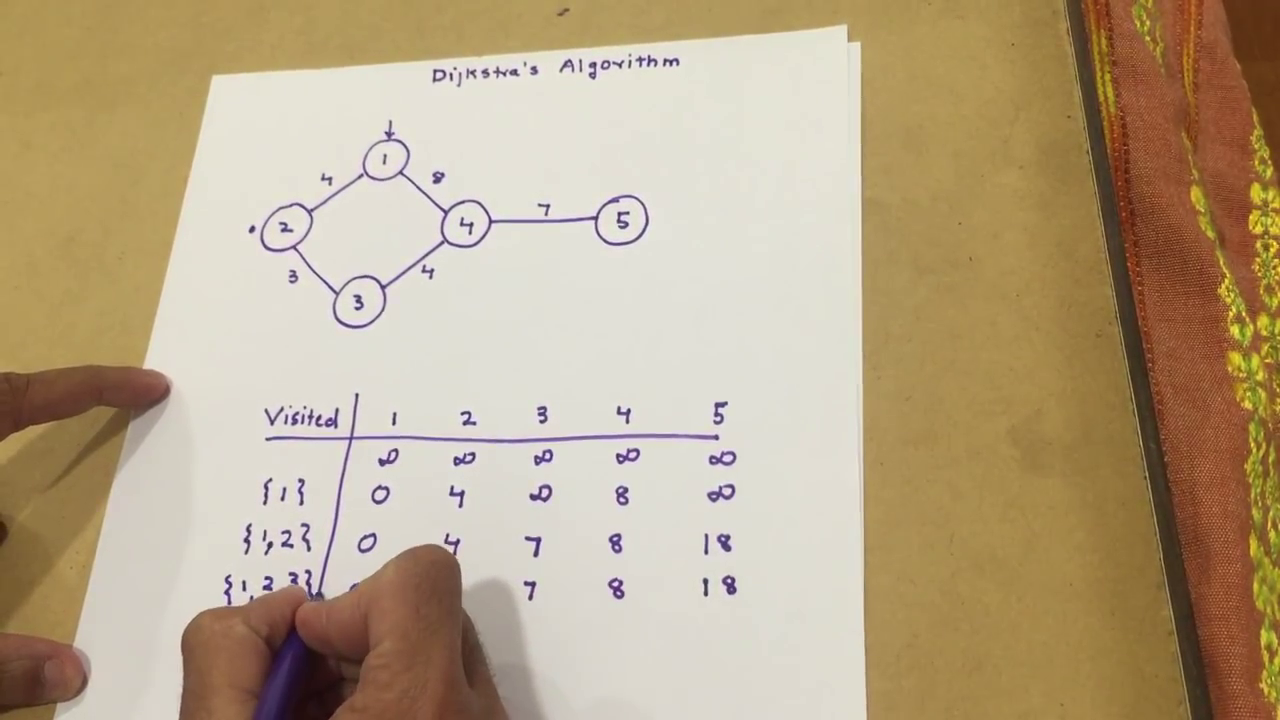 Dijkstra's Algorithm
1
4 8
2 4 7 5
3 4
3
Visited 1 2 3 4 5
∞ ∞ ∞ ∞ ∞
{1} 0 4 ∞ 8 ∞
{1,2} 0 4 7 8 18
{1,2,3} 7 8 18